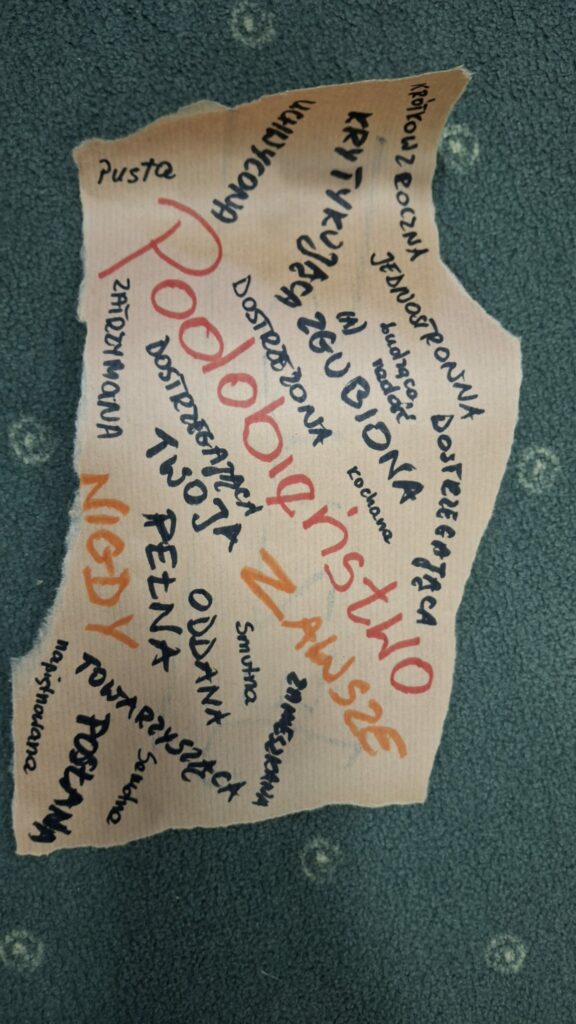 Pusta
UCHWYCONA
KRYTYKUJĄCA
KRÓTKOWZROCZNA
JEDNOSTRONNA
Podobieństwo
ZATRZYMANA
DOSTRZEŻONA
ZGUBIONA
budząca
nadzieję
DOSTRZEGAJĄCA
DOSTRZEGAJĄCA
kochana
TWOJA
NIGDY
PEŁNA
ZAWSZE
ODDANA
Smutna
ZAMIESZKANA
TOWARZYSZĄCA
napiętnowana
POSŁANA